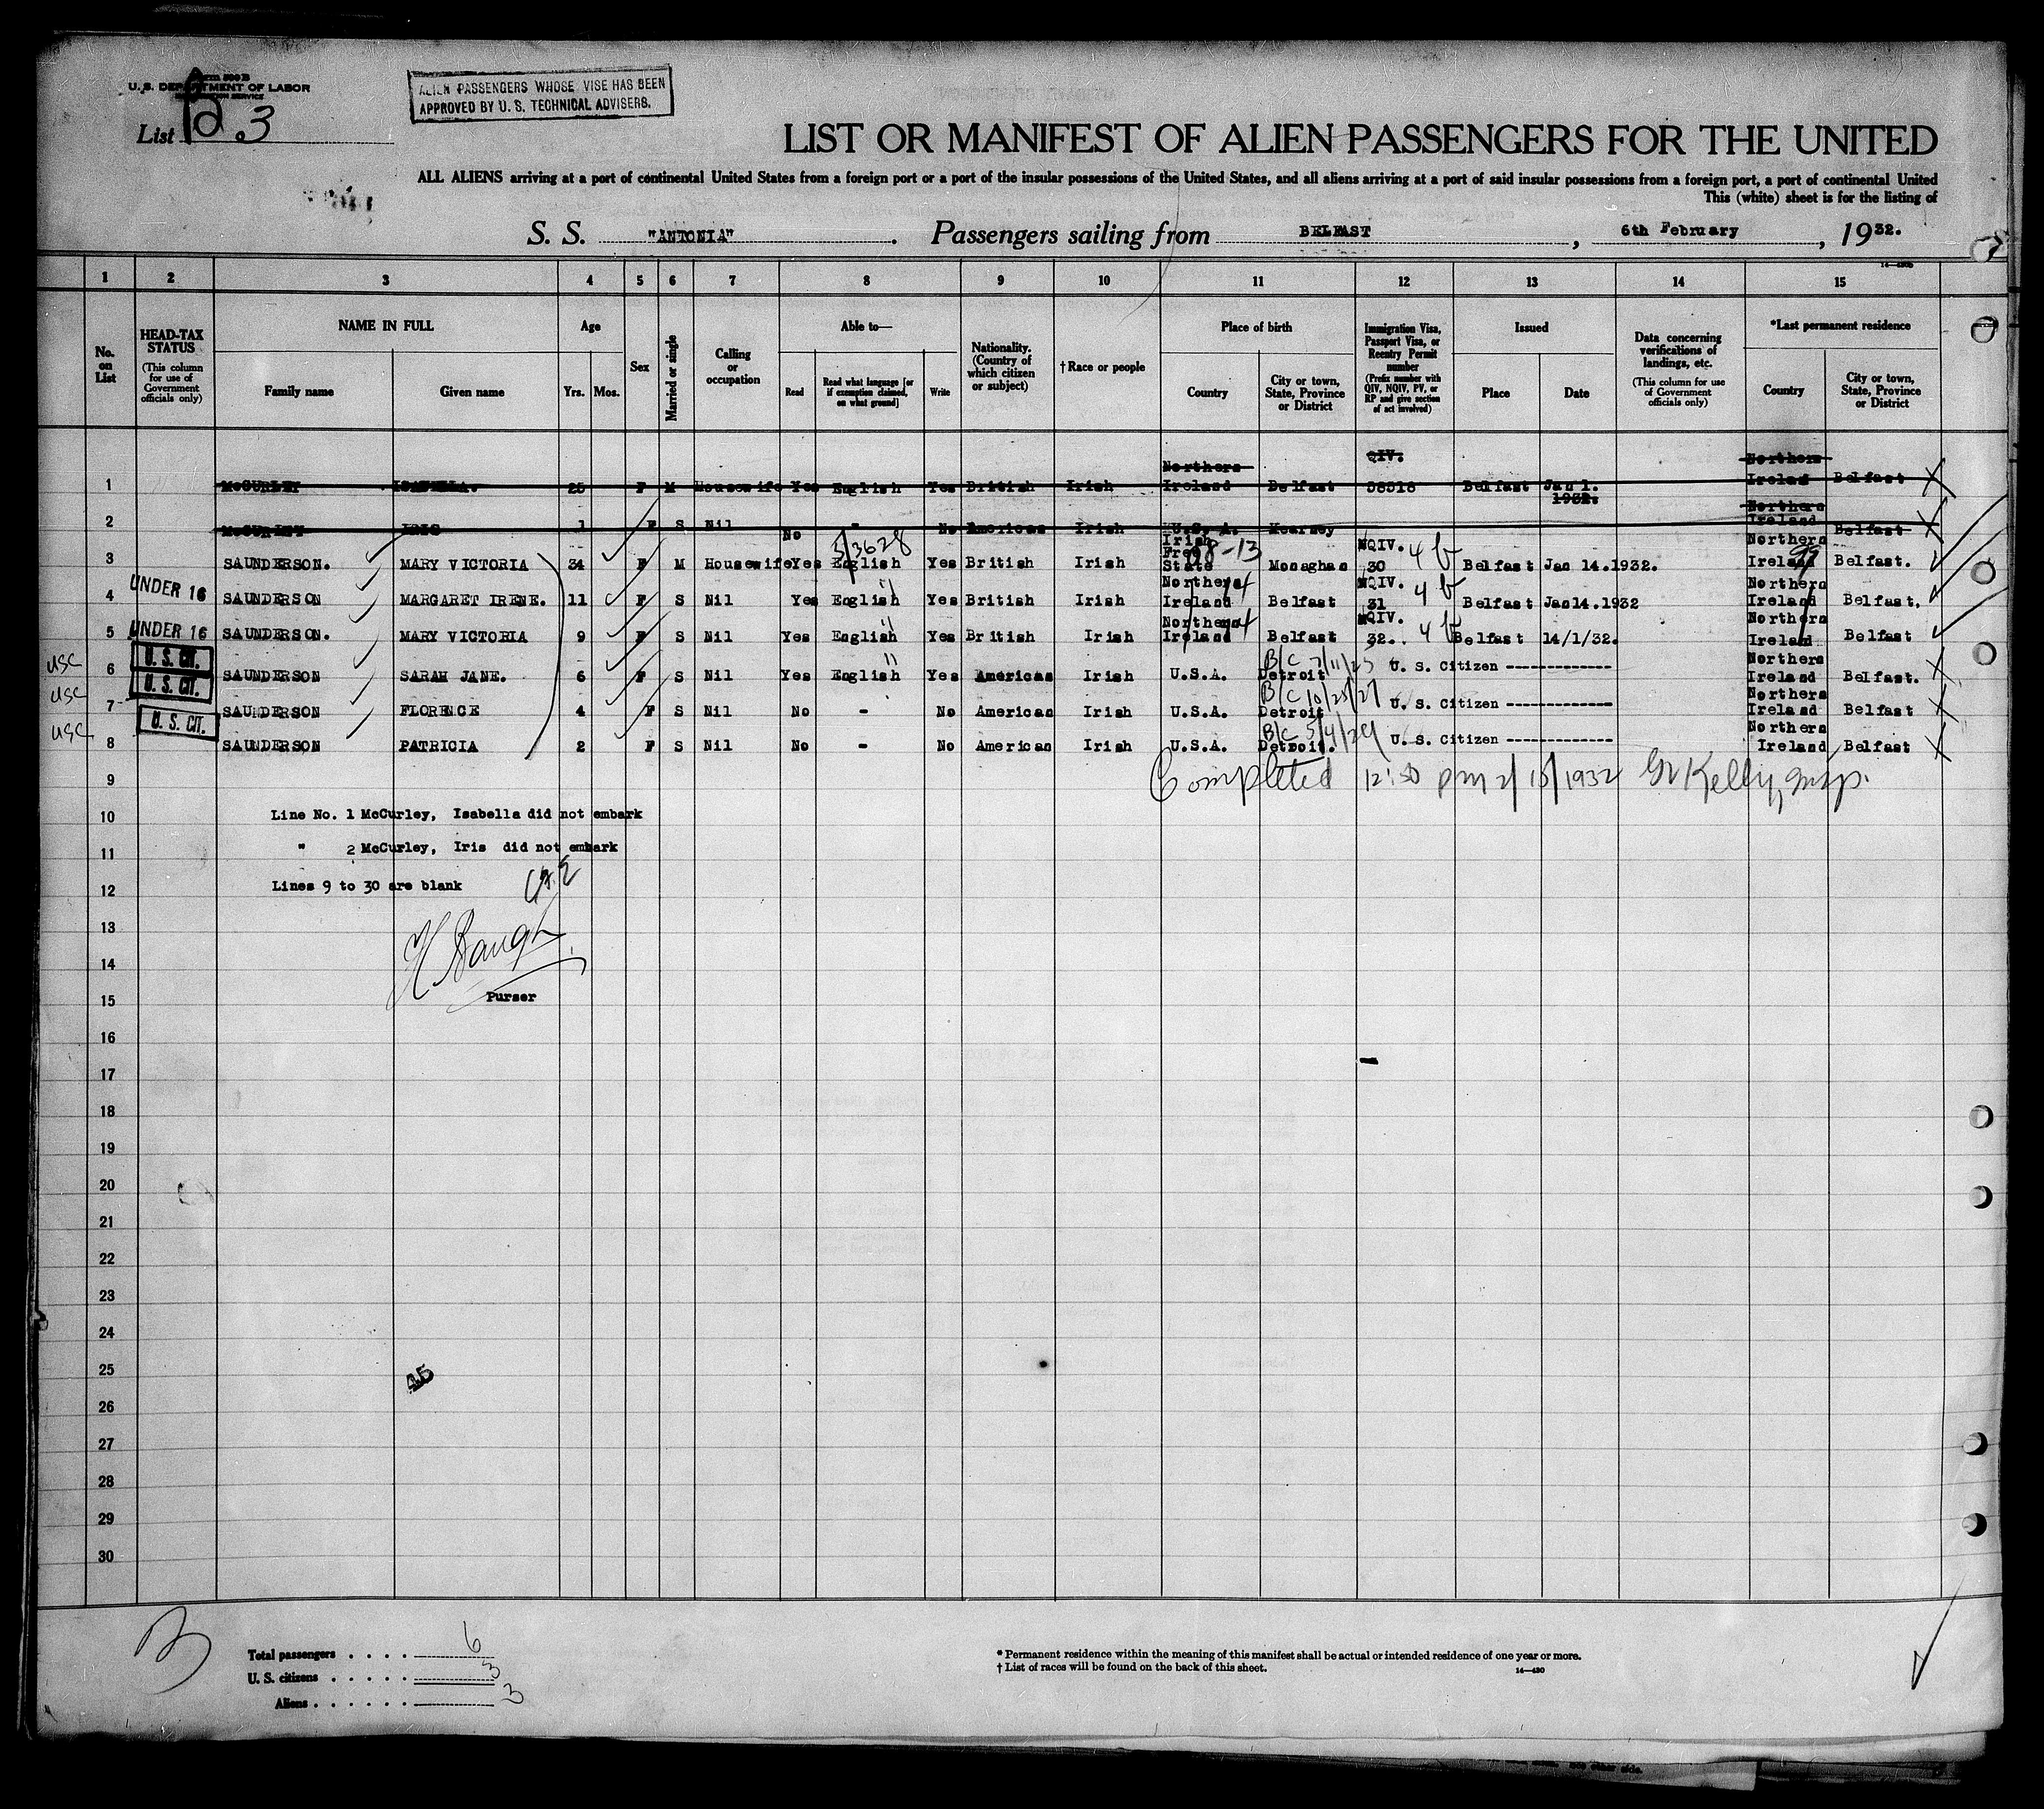 Form 500 B
U. S. DEPARTMENT OF LABOR
IMMIGRATION SERVICE
List 3
ALIEN PASSENGERS WHOSE VISE HAS BEEN
APPROVED BY U. S. TECHNICAL ADVISERS.
LIST OR MANIFEST OF ALIEN PASSENGERS FOR THE UNITED
ALL ALIENS arriving at a port of continental United States from a foreign port or a port of the insular possessions of the United States, and all aliens arriving at a port of said insular possessions from a foreign port, a port of continental United
This (white) sheet is for the listing of
S. S. "ANTONIA". Passengers sailing from BELFAST, 6th February, 1932.
1 2 3 4 5 6 7 8 9 10 11 12 13 14 15
No. on List
HEAD-TAX STATUS (This column for use of Government officials only)
NAME IN FULL Family name Given name
Age Yrs. Mos.
Sex
Married or single
Calling or occupation
Able to— Read Read what language [or if exemption claimed, on what ground] Write
Nationality. (Country of which citizen or subject)
†Race or people
Place of birth Country City or town, State, Province or District
Immigration Visa, Passport Visa, or Reentry Permit number (Prefix number with QIV, NQIV, PV, or RP and give section of act involved)
Issued Place Date
Data concerning verifications of landings, etc. (This column for use of Government officials only)
*Last permanent residence Country City or town, State, Province or District
1 McCURLEY ISABELLA. 25 F M Housewife Yes English Yes British Irish Northern Ireland Belfast QIV. 38318 Belfast Jan 1. 1932. Northern Ireland Belfast X
2 McCURLEY IRIS 1 F S Nil No - No American Irish U.S.A. Kearney Northern Ireland Belfast X
3 SAUNDERSON. MARY VICTORIA 34 F M Housewife Yes English Yes British Irish Irish Free State Monaghan NQIV. 30 4 b Belfast Jan 14.1932. Northern Ireland Belfast.
4 UNDER 16 SAUNDERSON MARGARET IRENE. 11 F S Nil Yes English " Yes British Irish Northern Ireland Belfast NQIV. 31 4 b Belfast Jan14.1932 Northern Ireland Belfast.
5 UNDER 16 SAUNDERSON. MARY VICTORIA 9 F S Nil Yes English " Yes British Irish Northern Ireland Belfast NQIV. 32.. 4 b Belfast 14/1/32. Northern Ireland Belfast
USC 6 U. S. CIT. SAUNDERSON SARAH JANE. 6 F S Nil Yes English " Yes American Irish U.S.A. Detroit B/C 7/11/25 U. S. Citizen ------------- Northern Ireland Belfast. X
USC 7 U. S. CIT. SAUNDERSON FLORENCE 4 F S Nil No - No American Irish U.S.A. Detroit B/C 10/25/27 U. S. Citizen ------------- Northern Ireland Belfast X
USC 8 U. S. CIT. SAUNDERSON PATRICIA 2 F S Nil No - No American Irish U.S.A. Detroit. B/C 5/4/29 U. S. Citizen ------------- Northern Ireland Belfast X
9 Completed 12:30 pm 2/15/1932 Kelly, Insp.
10 Line No. 1 McCurley, Isabella did not embark
11 " 2 McCurley, Iris did not embark
12 Lines 9 to 30 are blank
13
14 H Baugh
15 Purser
16
17
18
19
20
21
22
23
24
25 45
26
27
28
29
30
Total passengers . . . . 6
U. S. citizens . . . . . 3
Aliens . . . . . . 3
* Permanent residence within the meaning of this manifest shall be actual or intended residence of one year or more.
† List of races will be found on the back of this sheet.
14—430